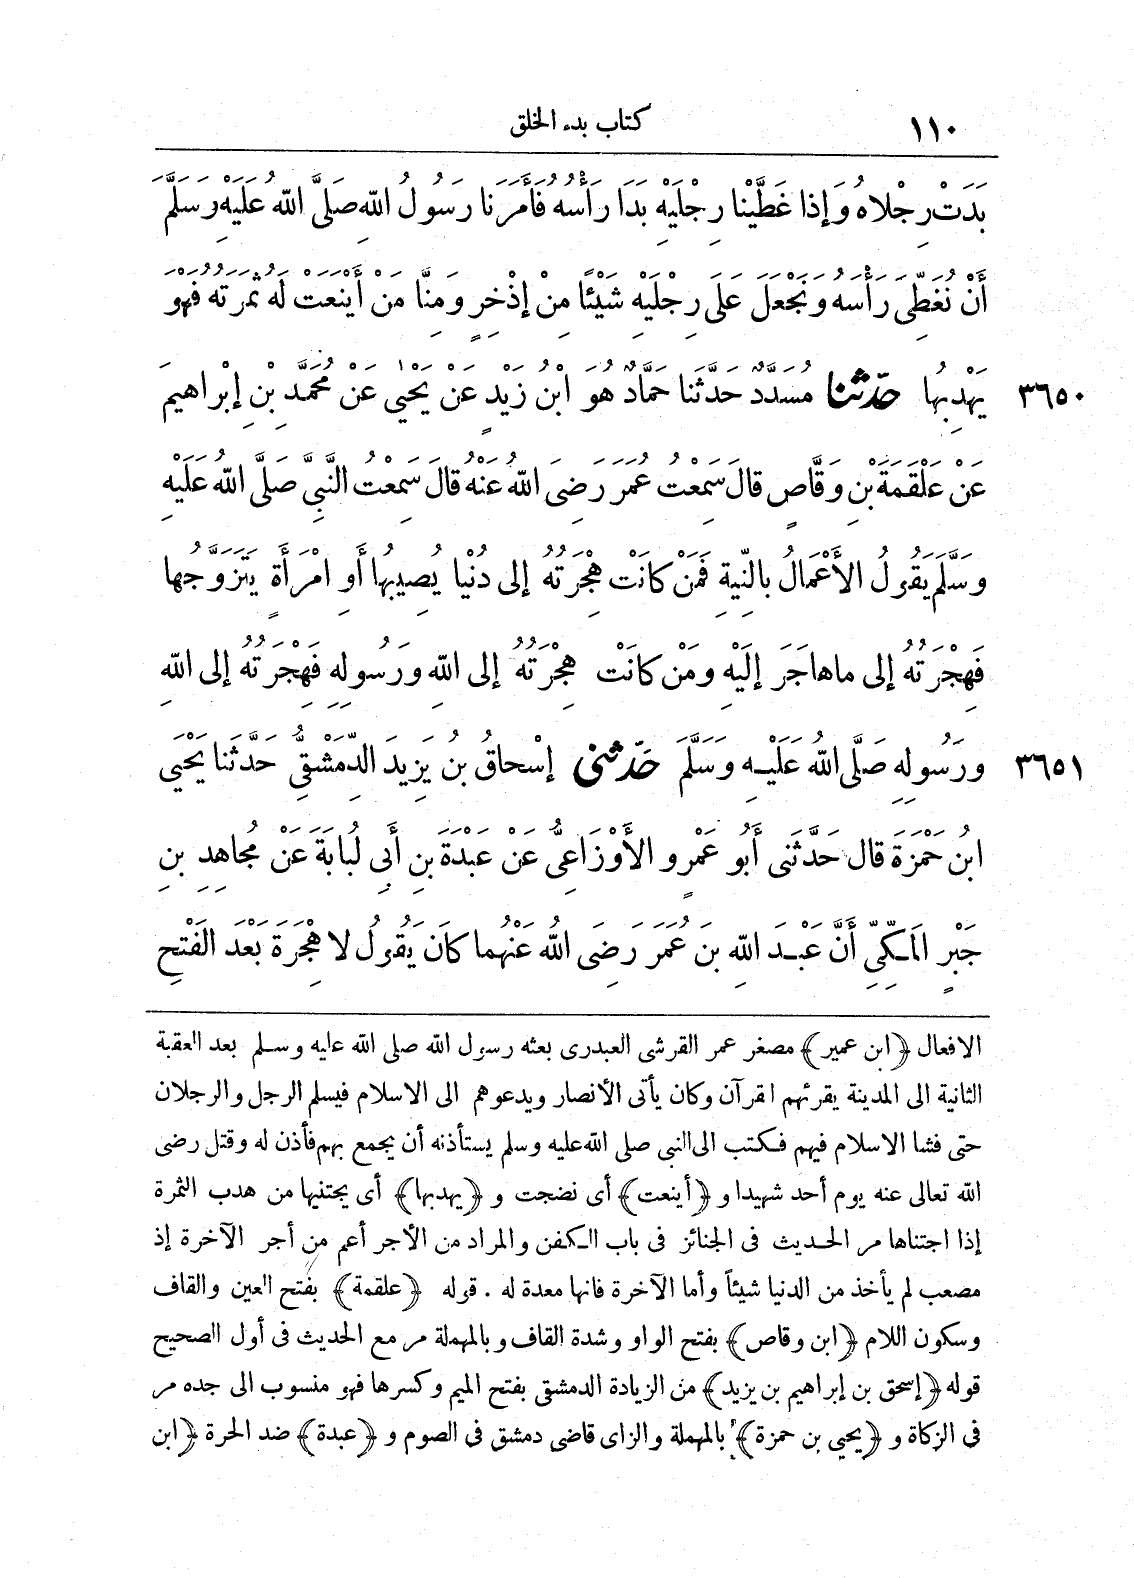 ١١٠ كتاب بدء الخلق
بَدَتْ رِجْلاهُ وَإذا غَطَّيْنا رِجْلَيْهِ بَدَا رَأْسُه فَأَمَرَنا رَسُولُ اللهِ صَلَّى اللهُ عَلَيْهِ وَسَلَّمَ
أَنْ نُغَطِّىَ رَأْسَهُ وَنَجْعَلَ عَلَى رِجْلَيْهِ شَيْئًا مِنْ إذْخِرٍ وَمِنَّا مَنْ أَيْنَعَتْ لَهُ ثَمَرَتُهُ فَهُوَ
٣٦٥٠ يَهْدِبُها حَدَّثنا مُسَدَّدٌ حَدَّثَنا حَمَّادٌ هُوَ ابْنُ زَيْدٍ عَنْ يَحْيَى عَنْ مُحَمَّدِ بْنِ إبْراهِيمَ
عَنْ عَلْقَمَةَ بْنِ وَقَّاصٍ قالَ سَمِعْتُ عُمَرَ رَضِىَ اللهُ عَنْهُ قالَ سَمِعْتُ النَّبِىَّ صَلَّى اللهُ عَلَيْهِ
وَسَلَّمَ يَقُولُ الأَعْمَالُ بِالنِّيَّةِ فَمَنْ كانَتْ هِجْرَتُهُ إلى دُنْيا يُصِيبُها أَوِ امْرَأَةٍ يَتَزَوَّجُها
فَهِجْرَتُهُ إلى ماهاجَرَ إلَيْهِ وَمَنْ كانَتْ هِجْرَتُهُ إلى اللهِ وَرَسُولِهِ فَهِجْرَتُهُ إلى اللهِ
٣٦٥١ وَرَسُولِهِ صَلَّى اللهُ عَلَيْهِ وَسَلَّمَ حَدَّثنى إسْحاقُ بْنُ يَزِيدَ الدِّمَشْقِىُّ حَدَّثَنا يَحْيَى
ابْنُ حَمْزَةَ قالَ حَدَّثَنى أَبُو عَمْرٍو الأَوْزَاعِىُّ عَنْ عَبْدَةَ بْنِ أَبى لُبابَةَ عَنْ مُجاهِدِ بْنِ
جَبْرٍ المَكِّىِّ أَنَّ عَبْدَ اللهِ بْنَ عُمَرَ رَضِىَ اللهُ عَنْهُما كانَ يَقُولُ لاهِجْرَةَ بَعْدَ الفَتْحِ
الافعال ﴿ابن عمير﴾ مصغر عمر القرشى العبدرى بعثه رسول الله صلى الله عليه وسلم بعد العقبة
الثانية الى المدينة يقرئهم القرآن وكان يأتى الأنصار ويدعوهم الى الاسلام فيسلم الرجل والرجلان
حتى فشا الاسلام فيهم فكتب الى النبى صلى الله عليه وسلم يستأذنه أن يجمع بهم فأذن له وقتل رضى
الله تعالى عنه يوم أحد شهيدا و ﴿أينعت﴾ أى نضجت و ﴿يهدبها﴾ أى يجتنيها من هدب الثمرة
إذا اجتناها مر الحديث فى الجنائز فى باب الكفن والمراد من الأجر أعم من أجر الآخرة إذ
مصعب لم يأخذ من الدنيا شيئاً وأما الآخرة فانها معدة له . قوله ﴿علقمة﴾ بفتح العين والقاف
وسكون اللام ﴿ابن وقاص﴾ بفتح الواو وشدة القاف وبالمهملة مر مع الحديث فى أول الصحيح
قوله ﴿إسحق بن إبراهيم بن يزيد﴾ من الزيادة الدمشقى بفتح الميم وكسرها فهو منسوب الى جده مر
فى الزكاة و ﴿يحيى بن حمزة﴾ بالمهملة والزاى قاضى دمشق فى الصوم و ﴿عبدة﴾ ضد الحرة ﴿ابن